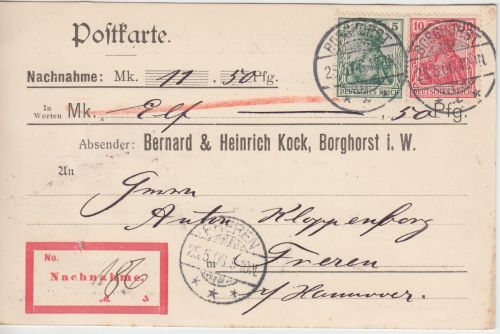 Postkarte.
5
10
DEUTSCHES REICH
DEUTSCHES REICH
BORGHORST
BORGHORST
Nachnahme: Mk. 11.50 Pfg.
In Worten Mk. Elf 50 Pfg.
Absender: Bernard & Heinrich Kock, Borghorst i. W.
An
Herrn
Anton Kloppenborg
Freren
b/Hannover
FREREN
25.5.06
No.
Nachnahme